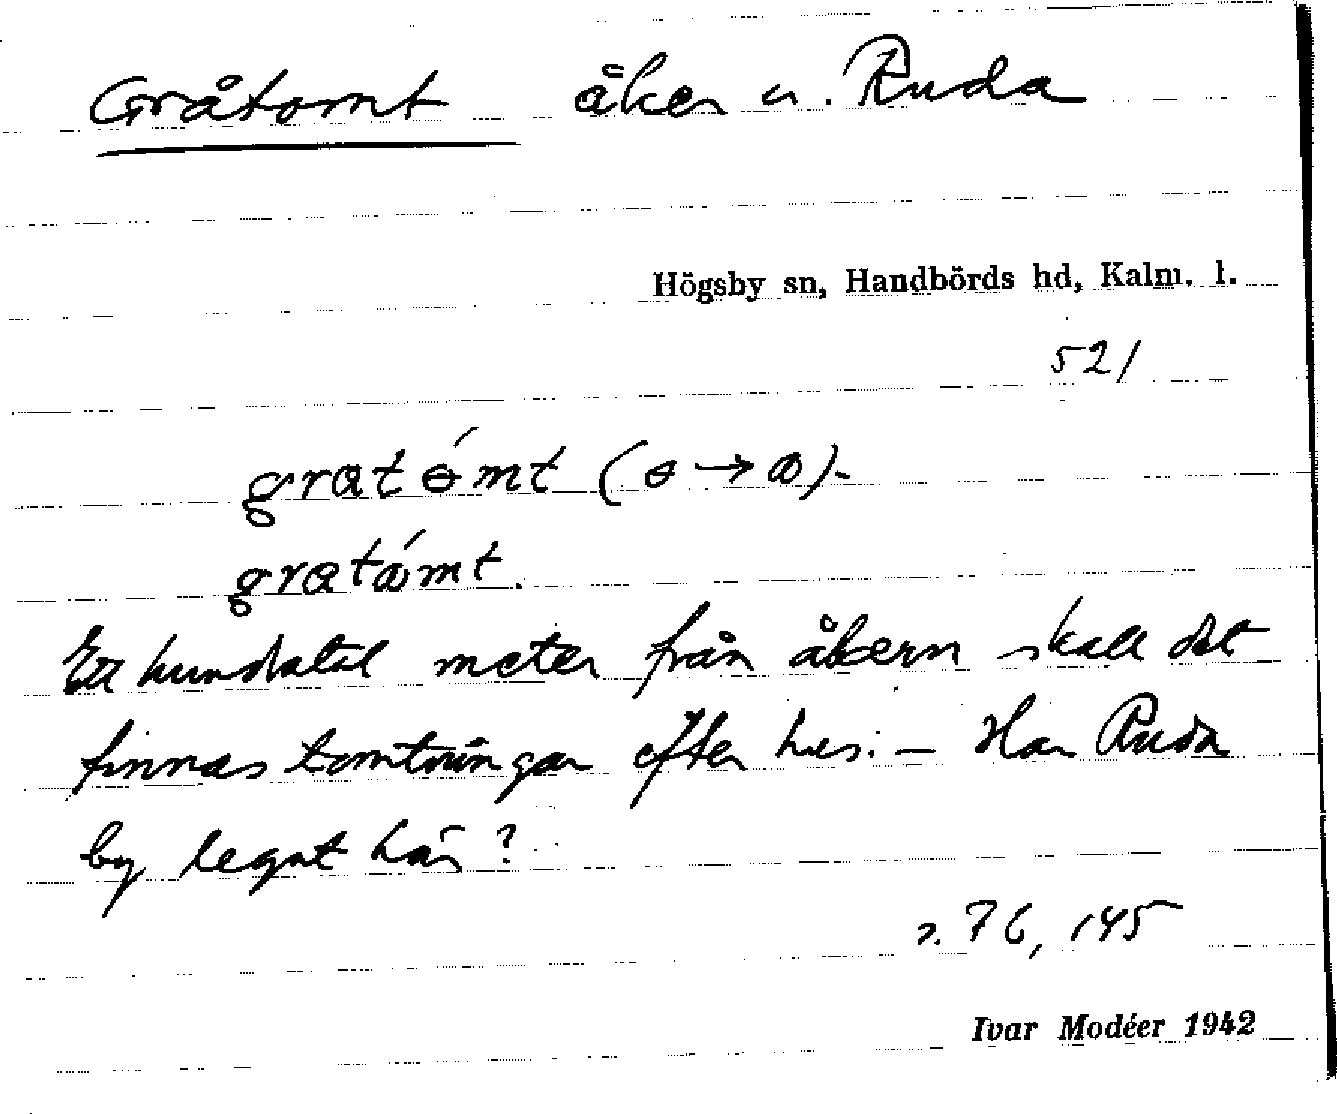 Gråtomt åker u. Ruda
Högsby sn, Handbörds hd, Kalm. l.
521
Ett hundratal meter från åkern skall det
finnas tomtningar efter hus. – Har Ruda
by legat här?
s. 76, 145
Ivar Modéer 1942